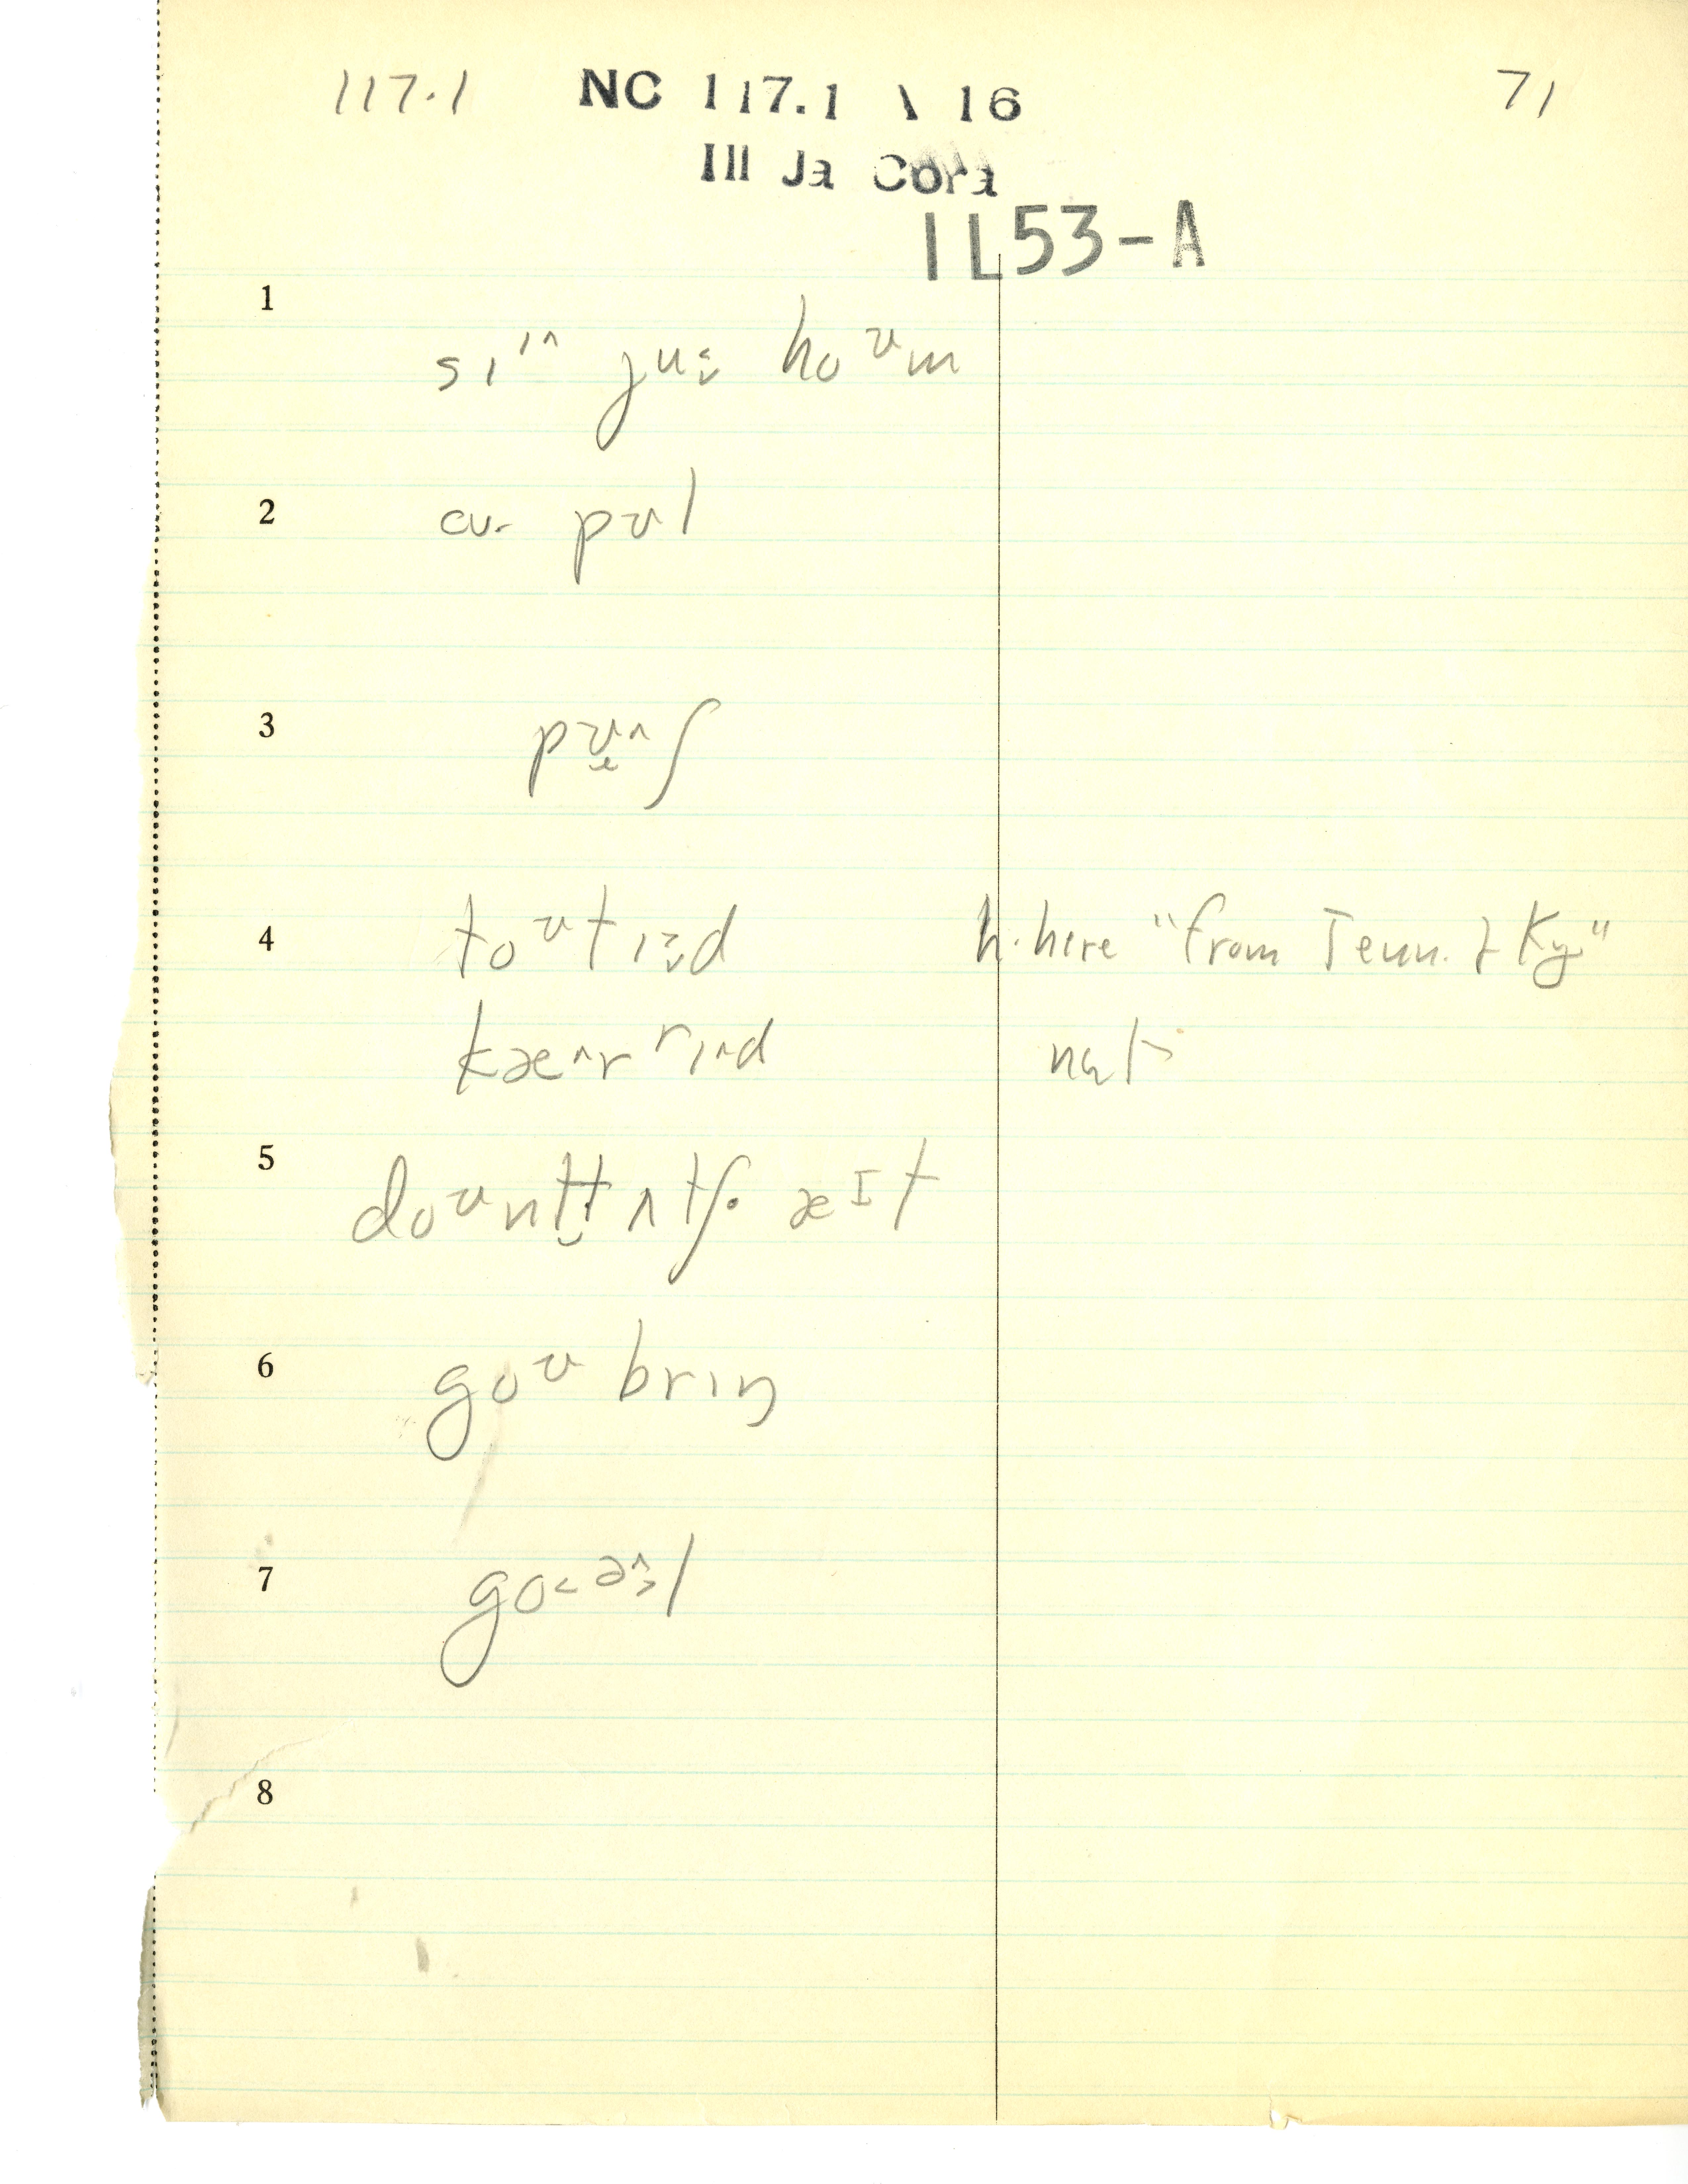 117.1 NC 117.1 \ 16 71
Ill Ja Cora
1L53-A
1
sɪ'ɪ^ ju̬< hoʊm
2
aɪ pʊl
3
pʊ^ʃ
4 toʊtɪ>̬d h. here "from Tenn. & Ky"
kæ^rrɪ^d nat
5
doʊnt tʌtʃ. æɪt
6 goʊ brɪŋ
7 go<ə^>l
8